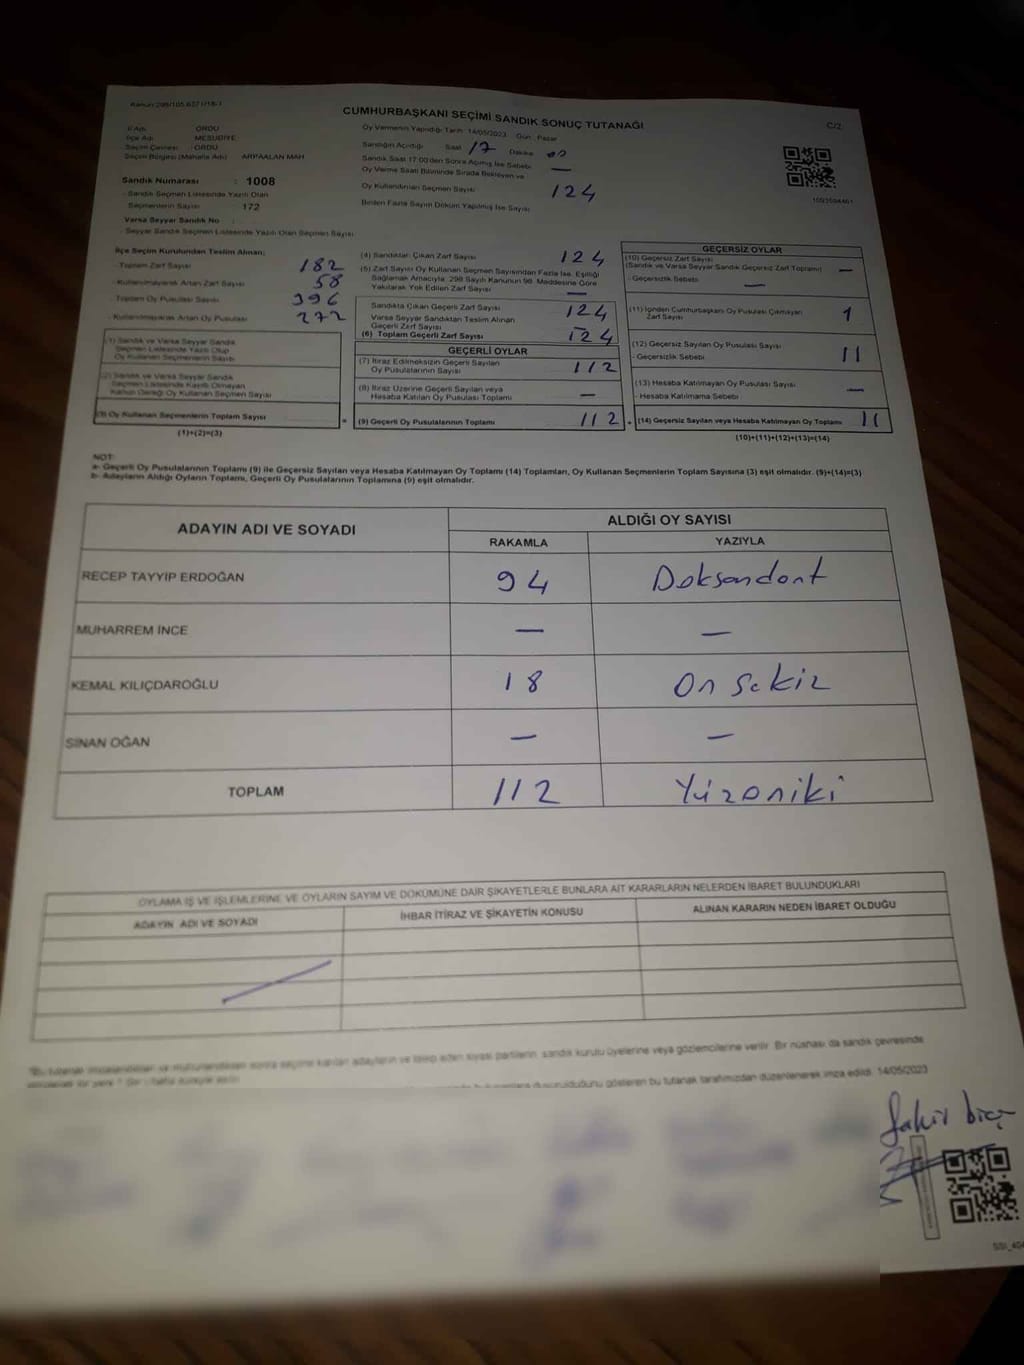 Kanun:298/105,6271/18-1
CUMHURBAŞKANI SEÇİMİ SANDIK SONUÇ TUTANAĞI
C/2
İl Adı : ORDU
İlçe Adı : MESUDİYE
Seçim Çevresi : ORDU
Seçim Bölgesi (Mahalle Adı) : ARPAALAN MAH
Sandık Numarası : 1008
- Sandık Seçmen Listesinde Yazılı Olan
Seçmenlerin Sayısı : 172
Varsa Seyyar Sandık No :
- Seyyar Sandık Seçmen Listesinde Yazılı Olan Seçmen Sayısı
Oy Vermenin Yapıldığı Tarih : 14/05/2023 Gün : Pazar
Sandığın Açıldığı Saat 17 Dakika 00
Sandık Saat 17:00'den Sonra Açılmış İse Sebebi —
Oy Verme Saati Bitiminde Sırada Bekleyen ve
Oy Kullandırılan Seçmen Sayısı 124
Birden Fazla Sayım Döküm Yapılmış İse Sayısı
İlçe Seçim Kurulundan Teslim Alınan;
- Toplam Zarf Sayısı 182
- Kullanılmayarak Artan Zarf Sayısı 58
- Toplam Oy Pusulası Sayısı 396
- Kullanılmayarak Artan Oy Pusulası 272
(1) Sandık ve Varsa Seyyar Sandık
Seçmen Listesinde Yazılı Olup
Oy Kullanan Seçmenlerin Sayısı
(2) Sandık ve Varsa Seyyar Sandık
Seçmen Listesinde Kayıtlı Olmayan
Kanun Gereği Oy Kullanan Seçmen Sayısı
(3) Oy Kullanan Seçmenlerin Toplam Sayısı
(1)+(2)=(3)
(4) Sandıktan Çıkan Zarf Sayısı 124
(5) Zarf Sayısı Oy Kullanan Seçmen Sayısından Fazla İse, Eşitliği
Sağlamak Amacıyla, 298 Sayılı Kanunun 98. Maddesine Göre
Yakılarak Yok Edilen Zarf Sayısı —
Sandıkta Çıkan Geçerli Zarf Sayısı 124
Varsa Seyyar Sandıktan Teslim Alınan
Geçerli Zarf Sayısı —
(6) Toplam Geçerli Zarf Sayısı 124
GEÇERLİ OYLAR
(7) İtiraz Edilmeksizin Geçerli Sayılan
Oy Pusulalarının Sayısı 112
(8) İtiraz Üzerine Geçerli Sayılan veya
Hesaba Katılan Oy Pusulası Toplamı —
= (9) Geçerli Oy Pusulalarının Toplamı 112
GEÇERSİZ OYLAR
(10) Geçersiz Zarf Sayısı
(Sandık ve Varsa Seyyar Sandık Geçersiz Zarf Toplamı) —
- Geçersizlik Sebebi —
(11) İçinden Cumhurbaşkanı Oy Pusulası Çıkmayan
Zarf Sayısı 1
(12) Geçersiz Sayılan Oy Pusulası Sayısı 11
- Geçersizlik Sebebi
(13) Hesaba Katılmayan Oy Pusulası Sayısı —
- Hesaba Katılmama Sebebi
+ (14) Geçersiz Sayılan veya Hesaba Katılmayan Oy Toplamı 11
(10)+(11)+(12)+(13)=(14)
NOT:
a- Geçerli Oy Pusulalarının Toplamı (9) ile Geçersiz Sayılan veya Hesaba Katılmayan Oy Toplamı (14) Toplamları, Oy Kullanan Seçmenlerin Toplam Sayısına (3) eşit olmalıdır. (9)+(14)=(3)
b- Adayların Aldığı Oyların Toplamı, Geçerli Oy Pusulalarının Toplamına (9) eşit olmalıdır.
ADAYIN ADI VE SOYADI
ALDIĞI OY SAYISI
RAKAMLA YAZIYLA
RECEP TAYYIP ERDOĞAN 94 Doksandört
MUHARREM İNCE — —
KEMAL KILIÇDAROĞLU 18 On Sekiz
SİNAN OĞAN — —
TOPLAM 112 Yüzoniki
OYLAMA İŞ VE İŞLEMLERİNE VE OYLARIN SAYIM VE DÖKÜMÜNE DAİR ŞİKAYETLERLE BUNLARA AİT KARARLARIN NELERDEN İBARET BULUNDUKLARI
ADAYIN ADI VE SOYADI
İHBAR İTİRAZ VE ŞİKAYETİN KONUSU
ALINAN KARARIN NEDEN İBARET OLDUĞU
adayların ve talep eden siyasi partilerin, sandık kurulu üyelerine veya gözlemcilerine verilir. Bir nüshası da sandık çevresinde
gösteren bu tutanak tarafımızdan düzenlenerek imza edildi. 14/05/2023